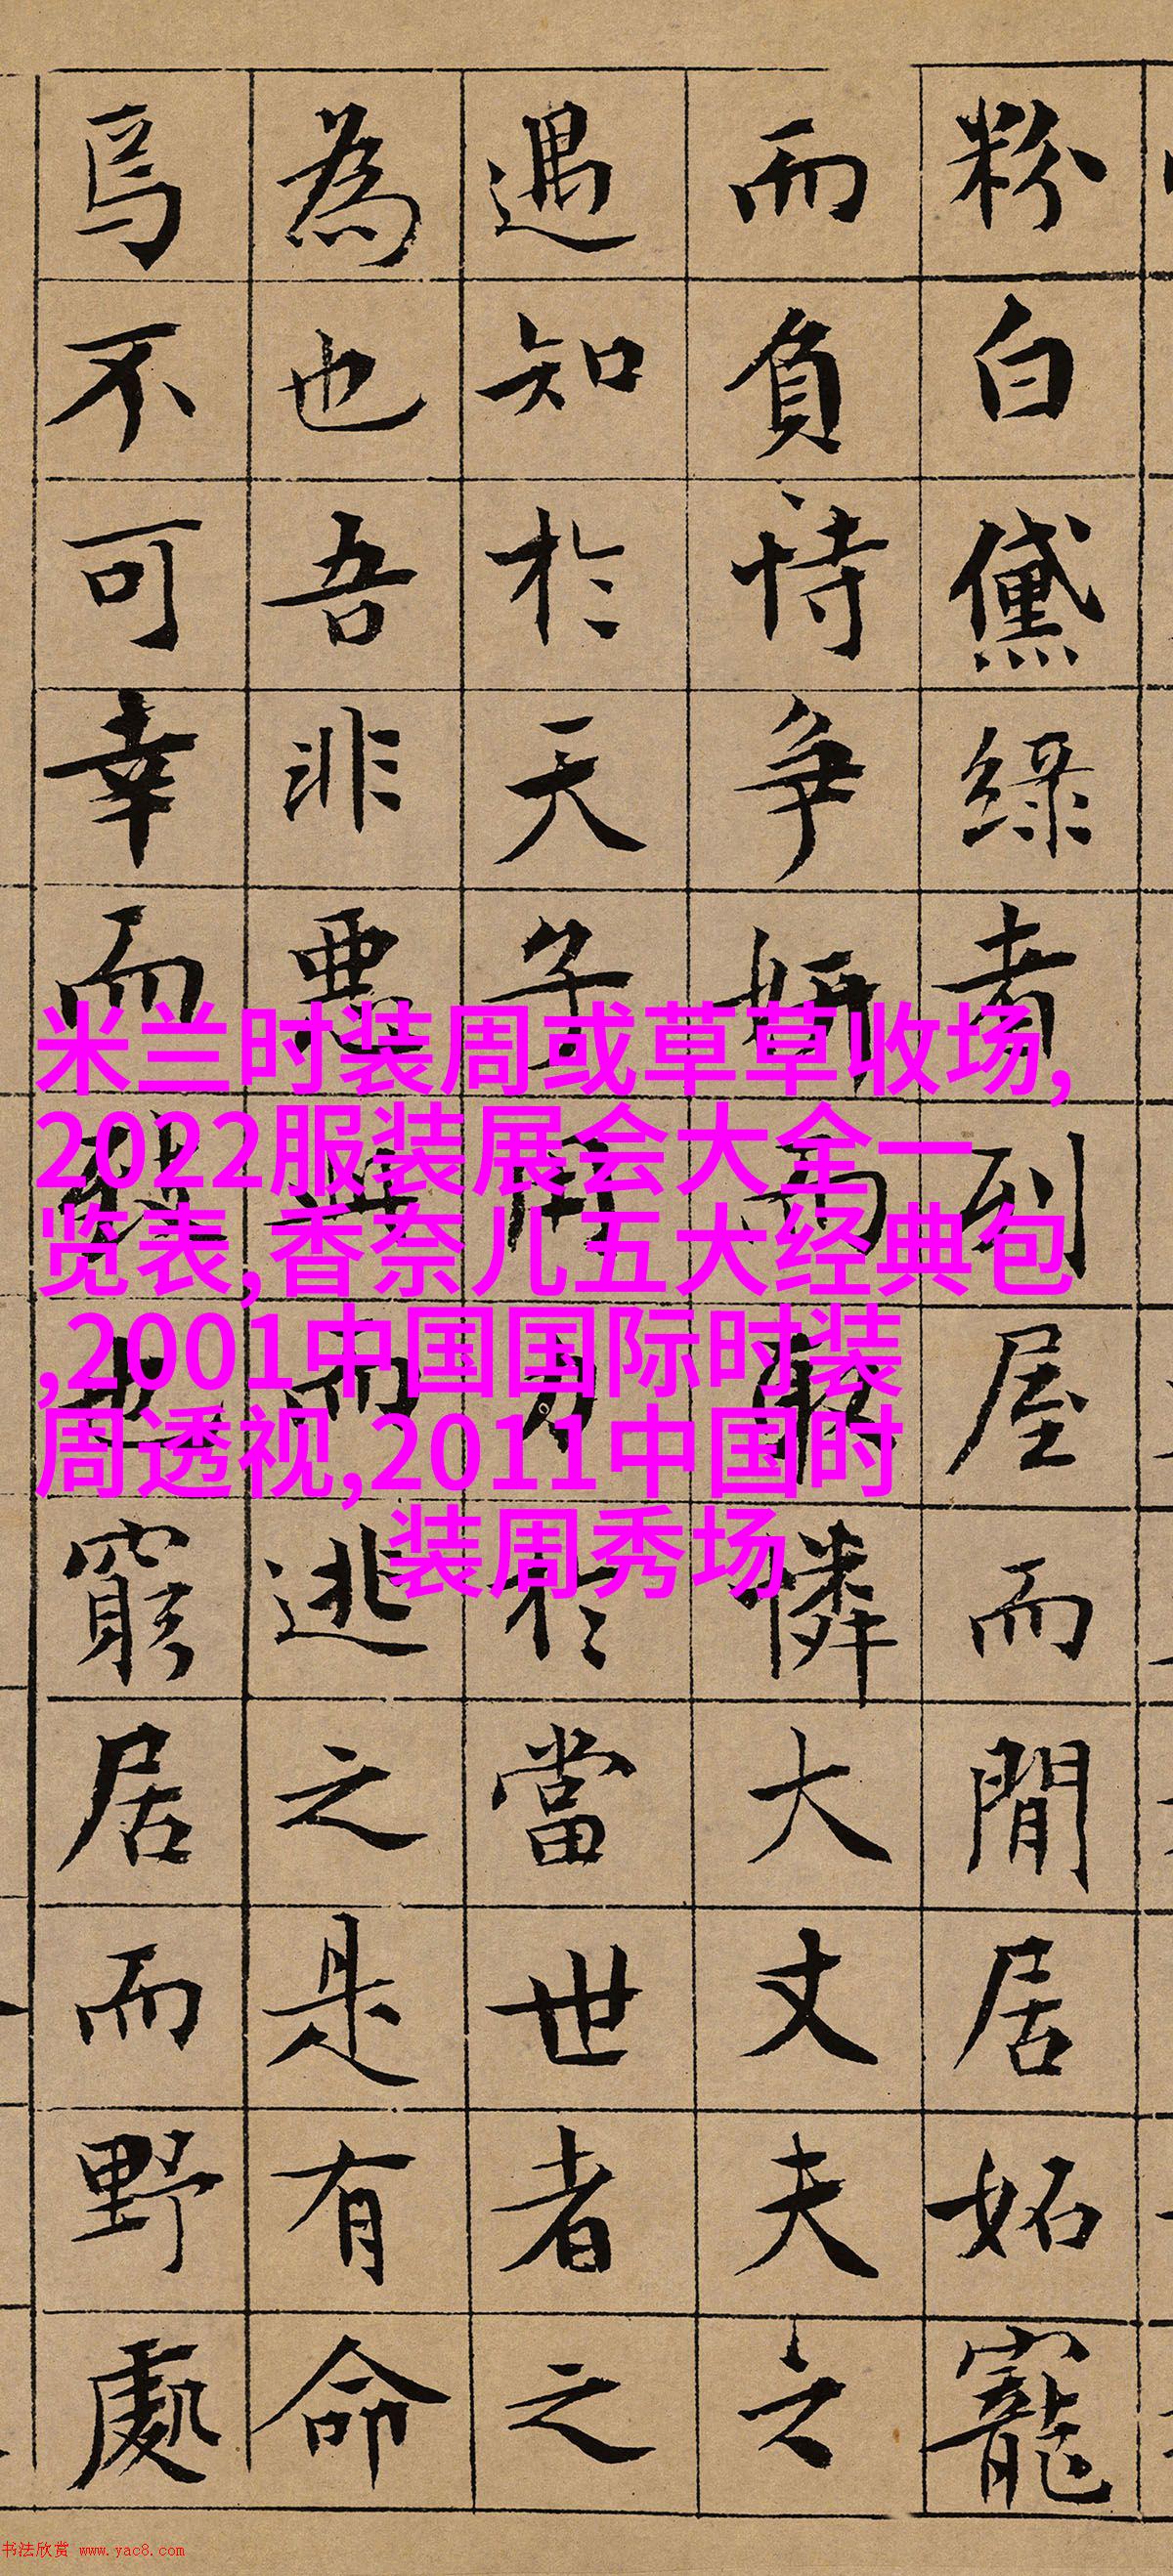 粉白黛綠者列屋而閒居妬寵
而負恃争妍而取憐大丈夫之
遇知於天子用力於當世者之
為也吾非惡此而逃之是有命
焉不可幸而也窮居而野處
米兰时装周或草草收场,
2022服装展会大全一
览表,香奈儿五大经典包
,2001中国国际时装
周透视,2011中国时
装周秀场
书法欣赏 www.yac8.com